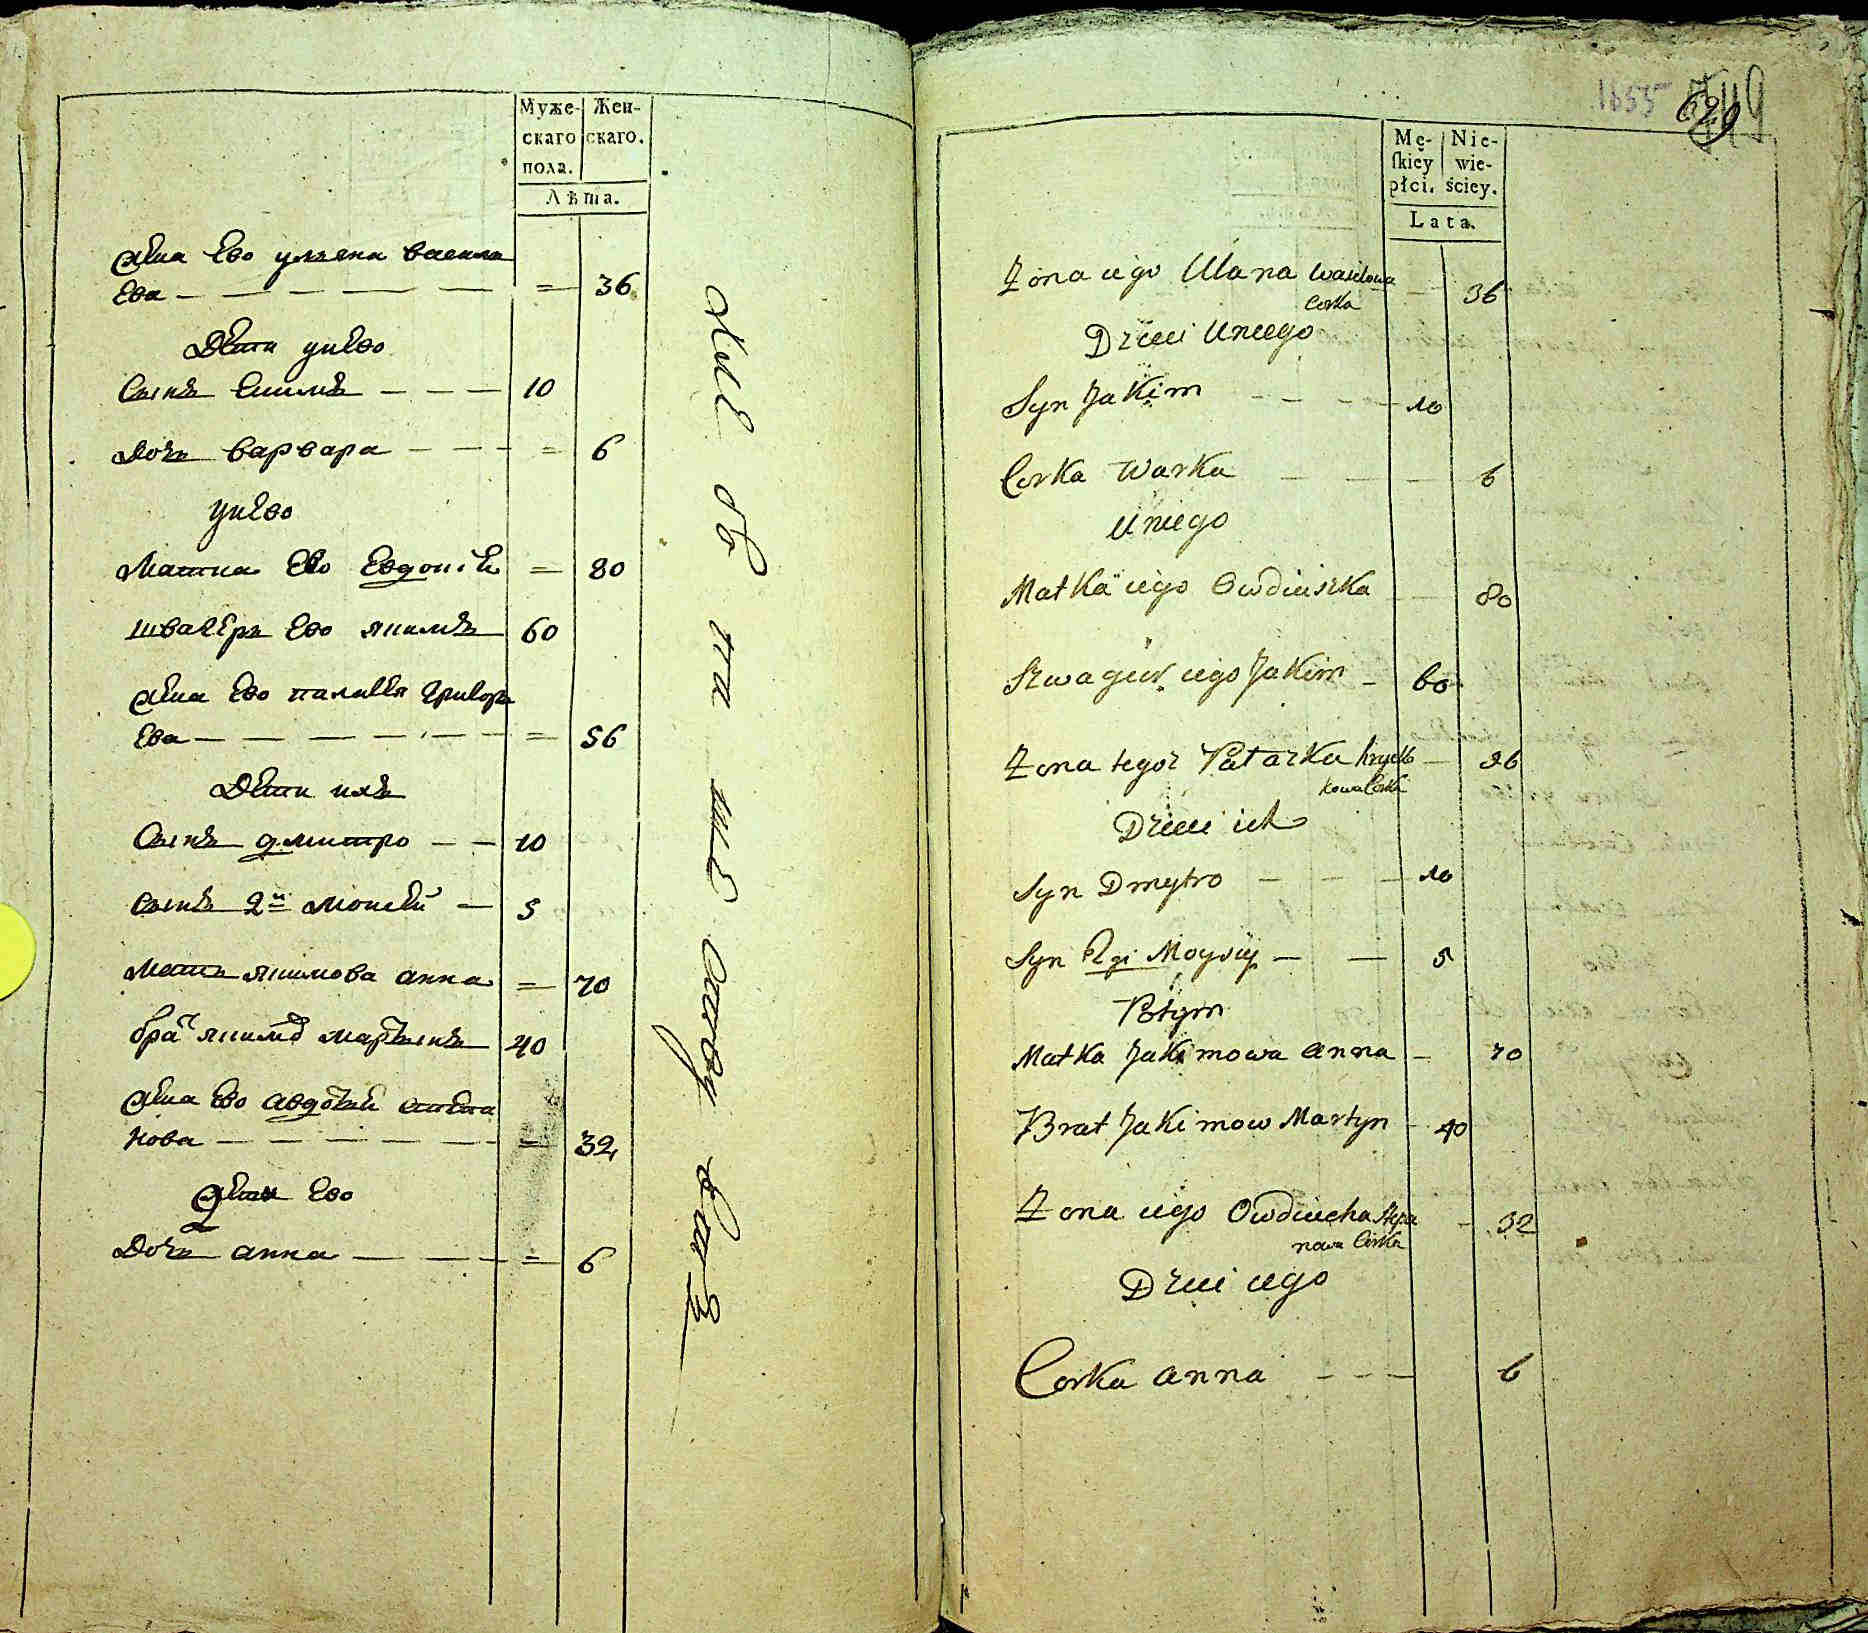 Муже-
скаго
пола.
Жен-
скаго.
Лѣта.
Жена Ево ульяна василь
Ева 36
Дѣти унево
Сынъ Екимъ 10
Дочь варвара 6
унево
Матка Ево Евдокія 80
швагеръ Ево якимъ 60
Жена Ево палагея григорь
Ева 56
Дѣти ихъ
Сынъ дмитро 10
Сынъ 2й моисей 5
Мать якимова анна 70
братъ якимовъ мартынъ 40
Жена Ево авдотья степа
нова 32
Дѣти Ево
Дочь анна 6
1655
629
Mę-
ſkiey
płci.
Nie-
wie-
ściey.
Lata.
Zona iego Ulana Wasilowa
Corka 36
Dzieci Uniego
Syn Jakim 10
Corka Warka 6
Uniego
Matka iego Owdiuszka 80
Szwagier iego Jakim 60
Zona tegoz Patazka hryćko
kowa Corka 56
Dzieci ich
Syn Dmytro 10
Syn 2gi Moysiy 5
Potym
Matka Jakimowa Anna 70
Brat Jakimow Martyn 40
Zona iego Owdiucha Stepa
nowa Corka 32
Dzieci iego
Corka Anna 6